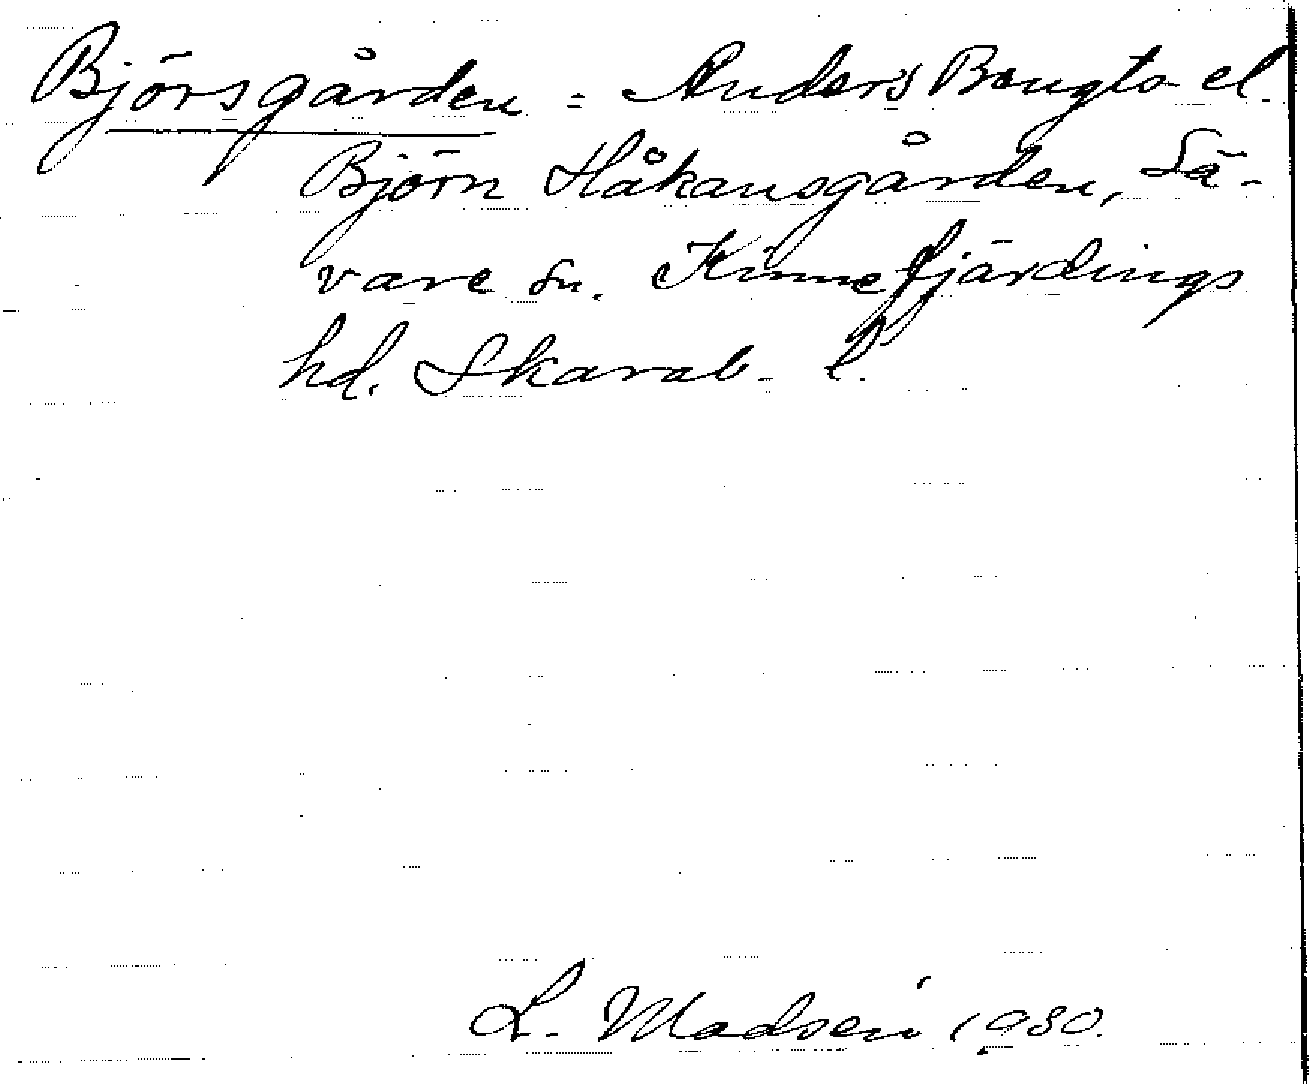 Björsgården = Anders Bengts- el.
Björn Håkansgården, Sä-
vare sn. Kinnefjärdings
hd. Skarab. l.
L. Madsen 1930.